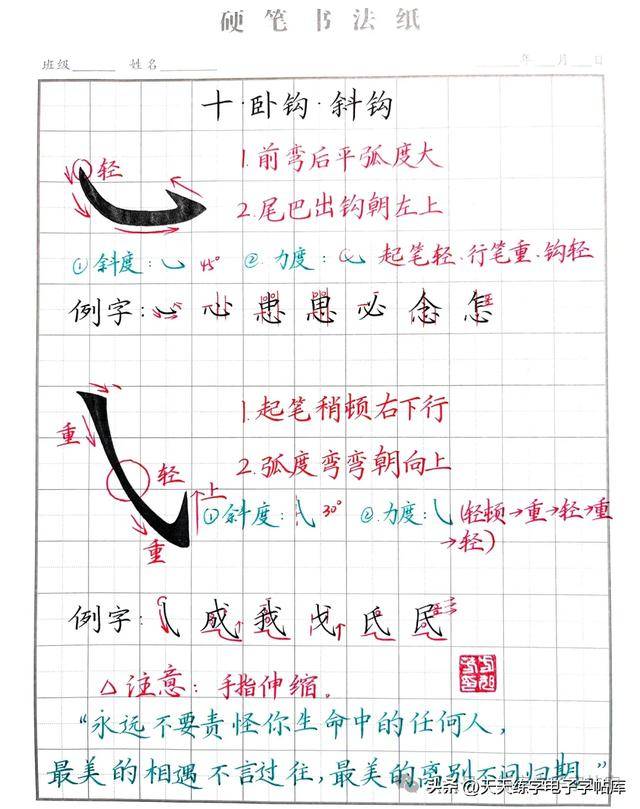 硬笔书法纸
班级 姓名 年 月 日
十·卧钩·斜钩
轻
1.前弯后平弧度大
2.尾巴出钩朝左上
①斜度: 45° ②力度: 起笔轻、行笔重、钩轻
例字: 心 患 愚 必 念 怎
1.起笔稍顿右下行
重
2.弧度弯弯朝向上
轻
上
①斜度: 30° ②力度: (轻顿→重→轻→重
→轻)
重
例字: 成 我 戈 氏 民
△注意: 手指伸缩。
“永远不要责怪你生命中的任何人,
最美的相遇不言过往,最美的离别不问归期。”
头条@天天练字电子字帖库